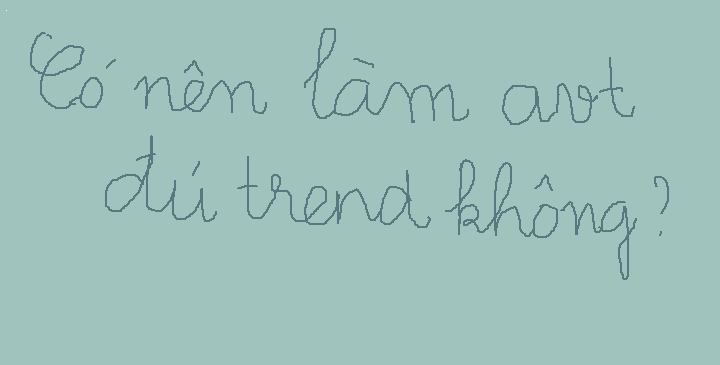 Có nên làm avt
đú trend không?